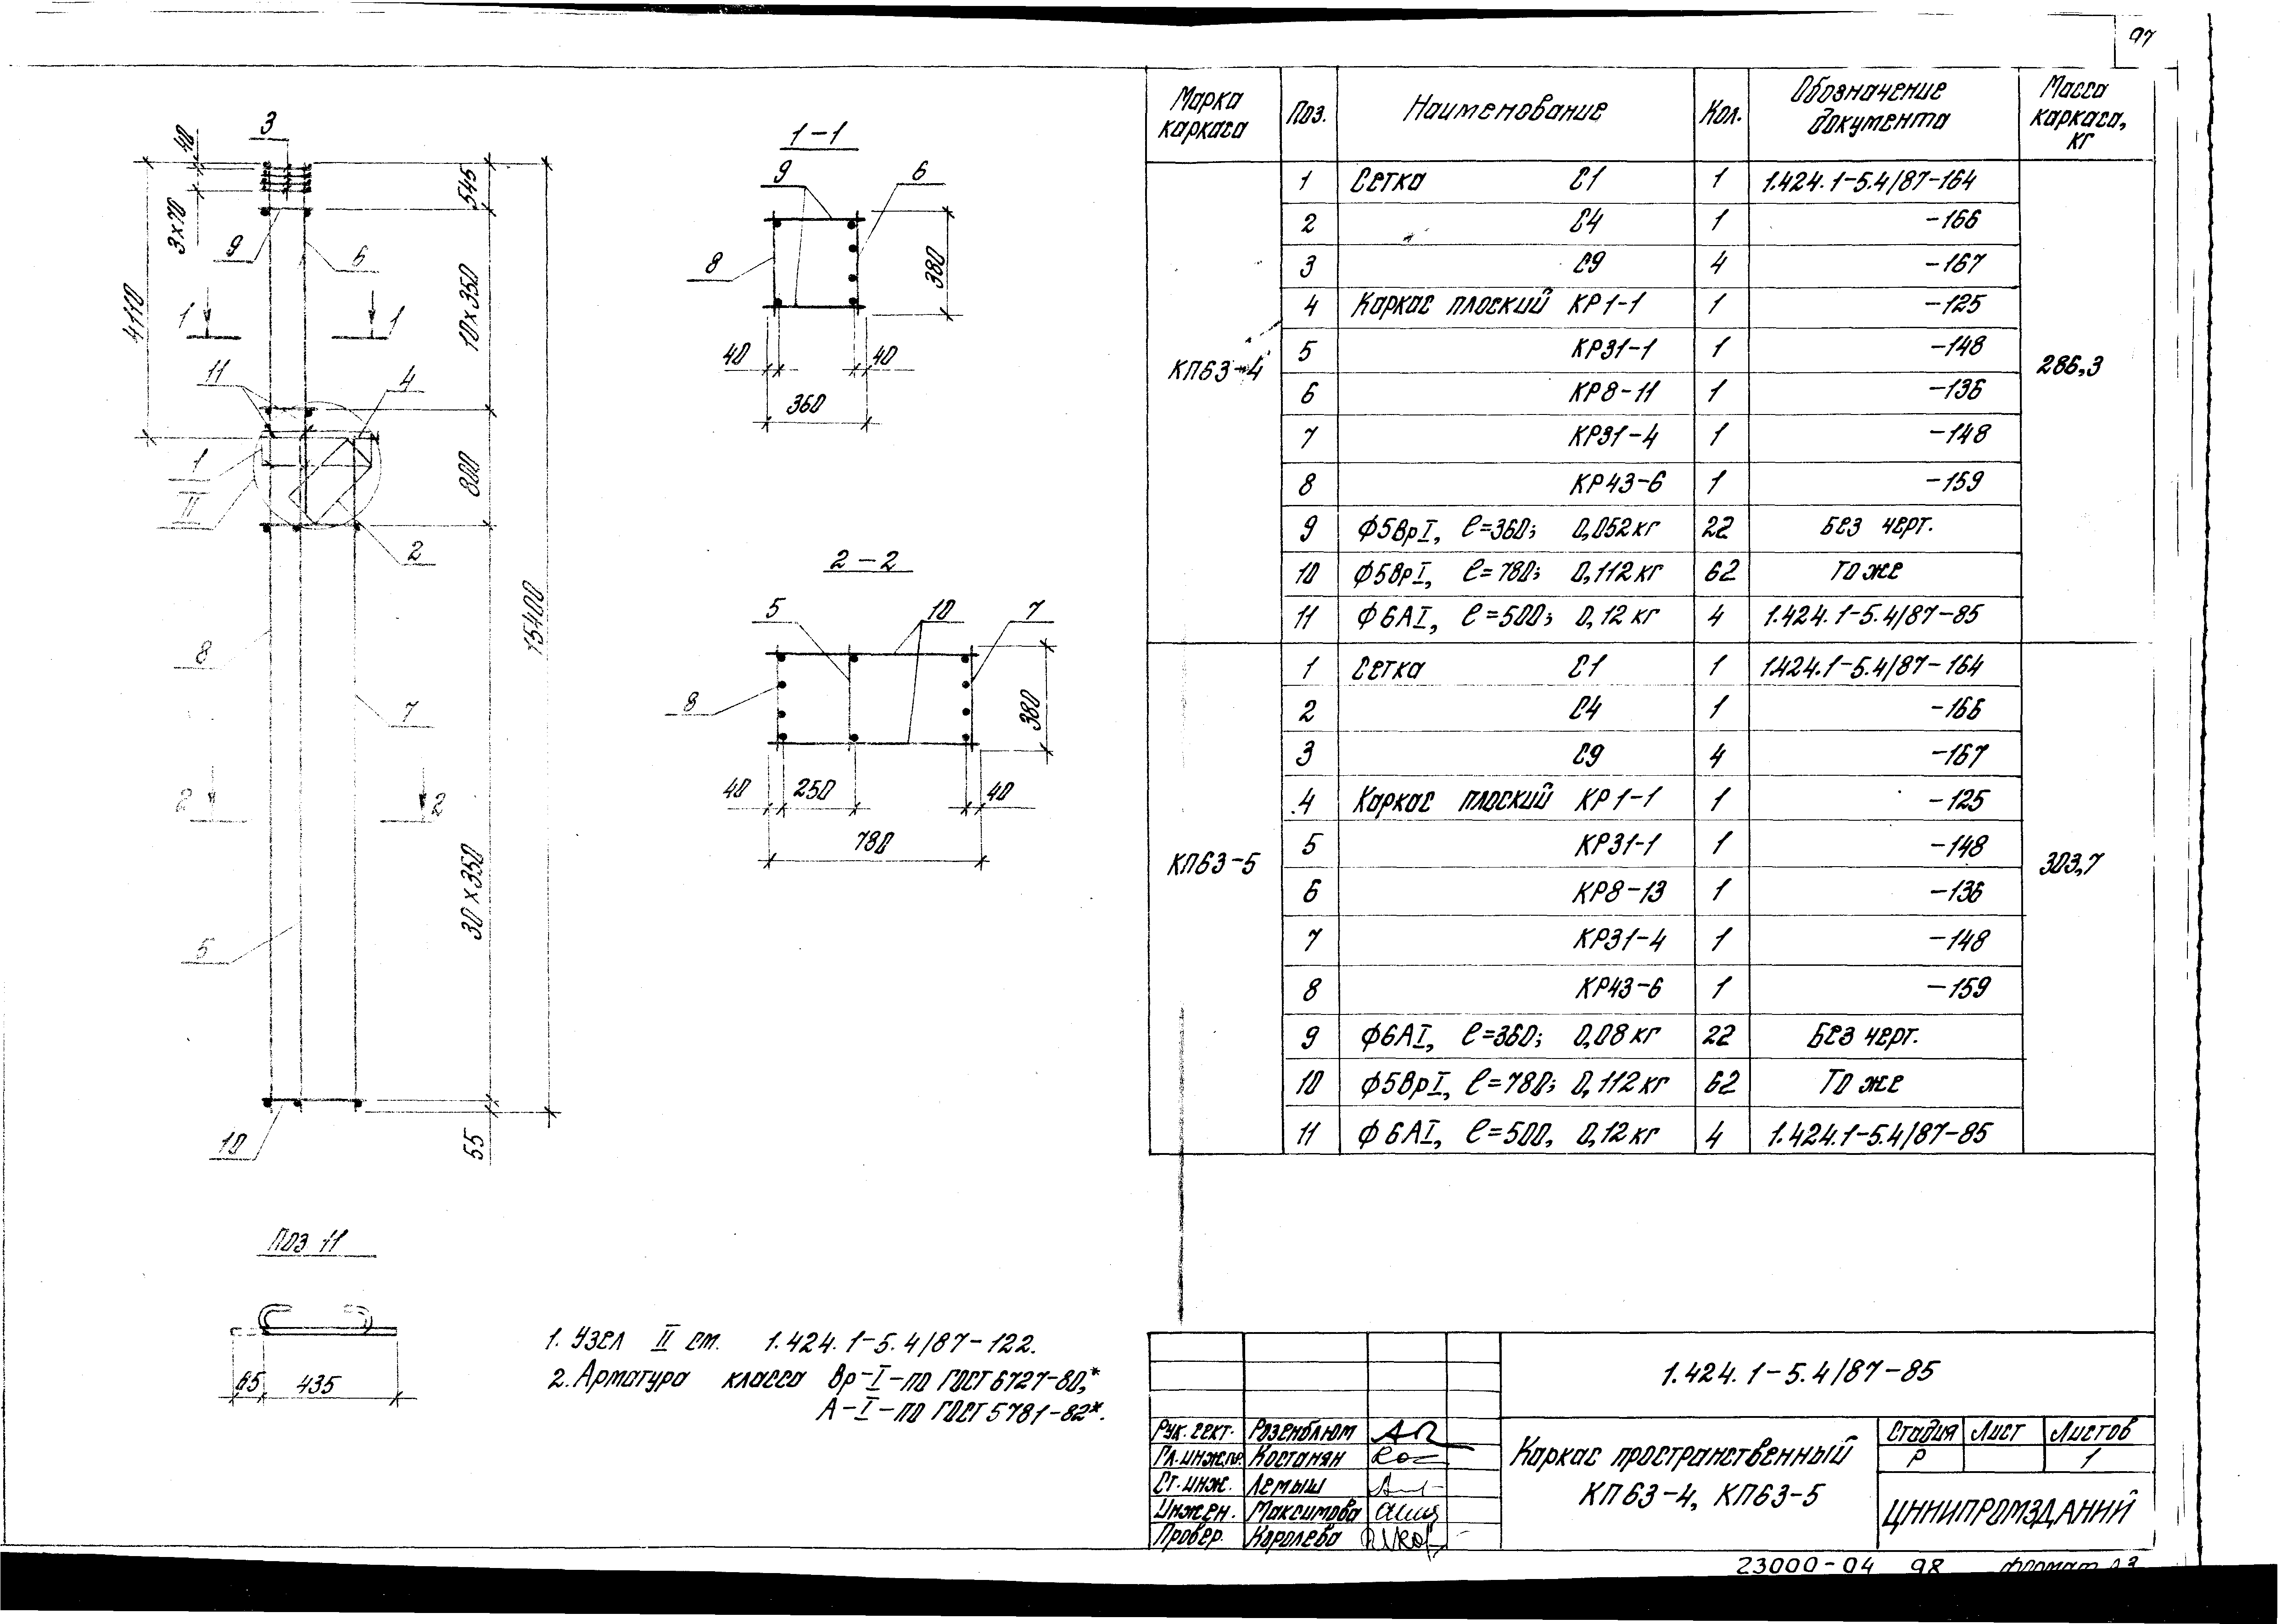 97
Марка каркаса Поз. Наименование Кол. Обозначение документа Масса каркаса, кг
КП63-4 286,3
1 Сетка С1 1 1.424.1-5.4/87-164
2 С4 1 -166
3 С9 4 -167
4 Каркас плоский КР1-1 1 -125
5 КР31-1 1 -148
6 КР8-11 1 -136
7 КР31-4 1 -148
8 КР43-6 1 -159
9 Ф5ВрI, ℓ=360; 0,052кг 22 Без черт.
10 Ф5ВрI, ℓ=780; 0,112кг 62 То же
11 Ф6АI, ℓ=500; 0,12кг 4 1.424.1-5.4/87-85
КП63-5 303,7
1 Сетка С1 1 1.424.1-5.4/87-164
2 С4 1 -166
3 С9 4 -167
4 Каркас плоский КР1-1 1 -125
5 КР31-1 1 -148
6 КР8-13 1 -136
7 КР31-4 1 -148
8 КР43-6 1 -159
9 Ф6АI, ℓ=360; 0,08кг 22 Без черт.
10 Ф5ВрI, ℓ=780; 0,112кг 62 То же
11 Ф6АI, ℓ=500, 0,12кг 4 1.424.1-5.4/87-85
40
3
3×70
9
6
545
4110
1
1
10×350
11
4
1
II
800
2
8
15400
7
2
2
5
30×350
10
55
1-1
9
6
8
380
40
40
360
2-2
5
10
7
8
380
40
250
40
780
Поз 11
65
435
1. Узел II см. 1.424.1-5.4/87-122.
2. Арматура класса Вр-I-по ГОСТ 6727-80,*
А-I-по ГОСТ 5781-82*.
1.424.1-5.4/87-85
Рук. сект. Розенблюм
Гл.инж.пр. Костанян
Ст.инж. Лемыш
Инжен. Максимова
Провер. Королева
Каркас пространственный
КП63-4, КП63-5
Стадия Лист Листов
Р 1
ЦНИИПРОМЗДАНИЙ
23000-04 98 Формат А3